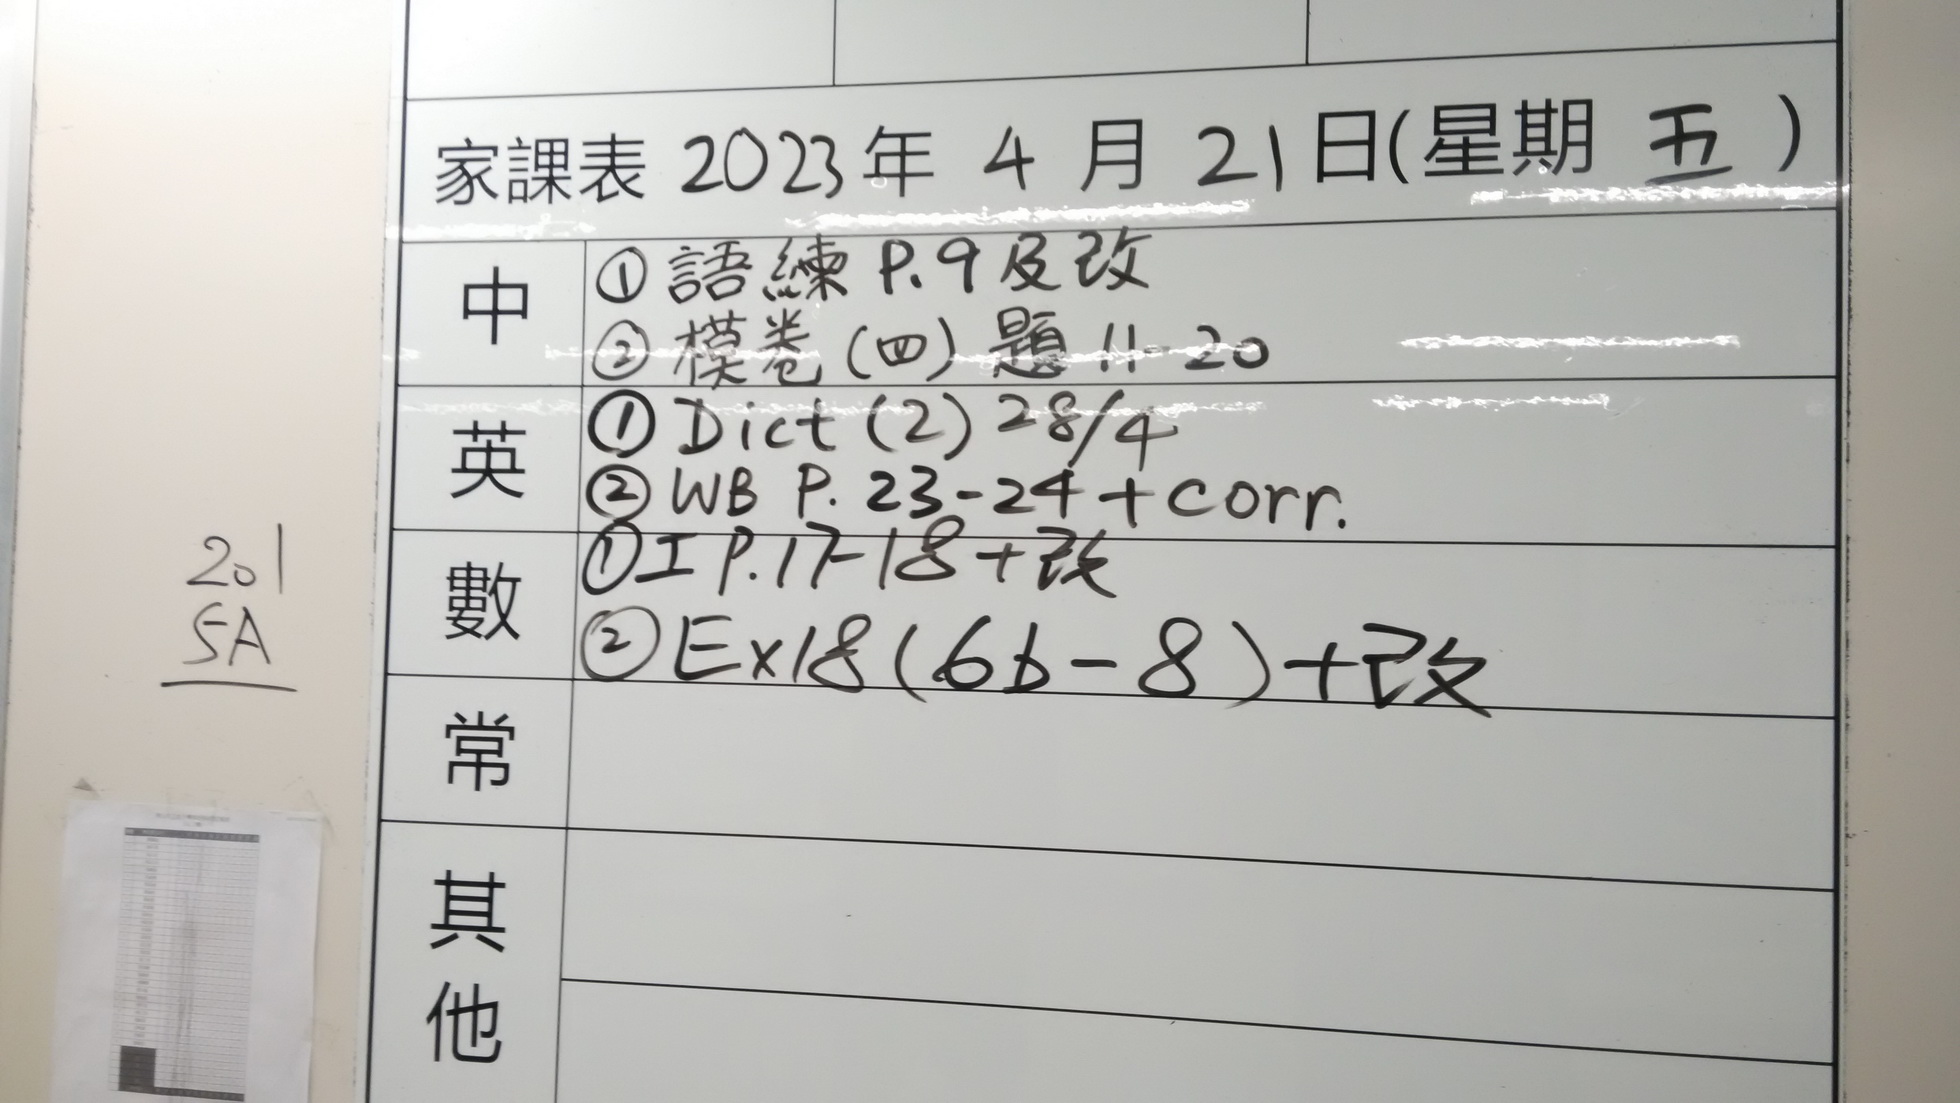 家課表 2023年 4 月 21日(星期 五 )
中
① 語練 P.9及改
② 模卷 (四) 題 11-20
英
① Dict (2) 28/4
② WB P. 23-24 + corr.
數
① I P.17-18 + 改
② Ex18(6b-8)+改
常
其他
201
5A